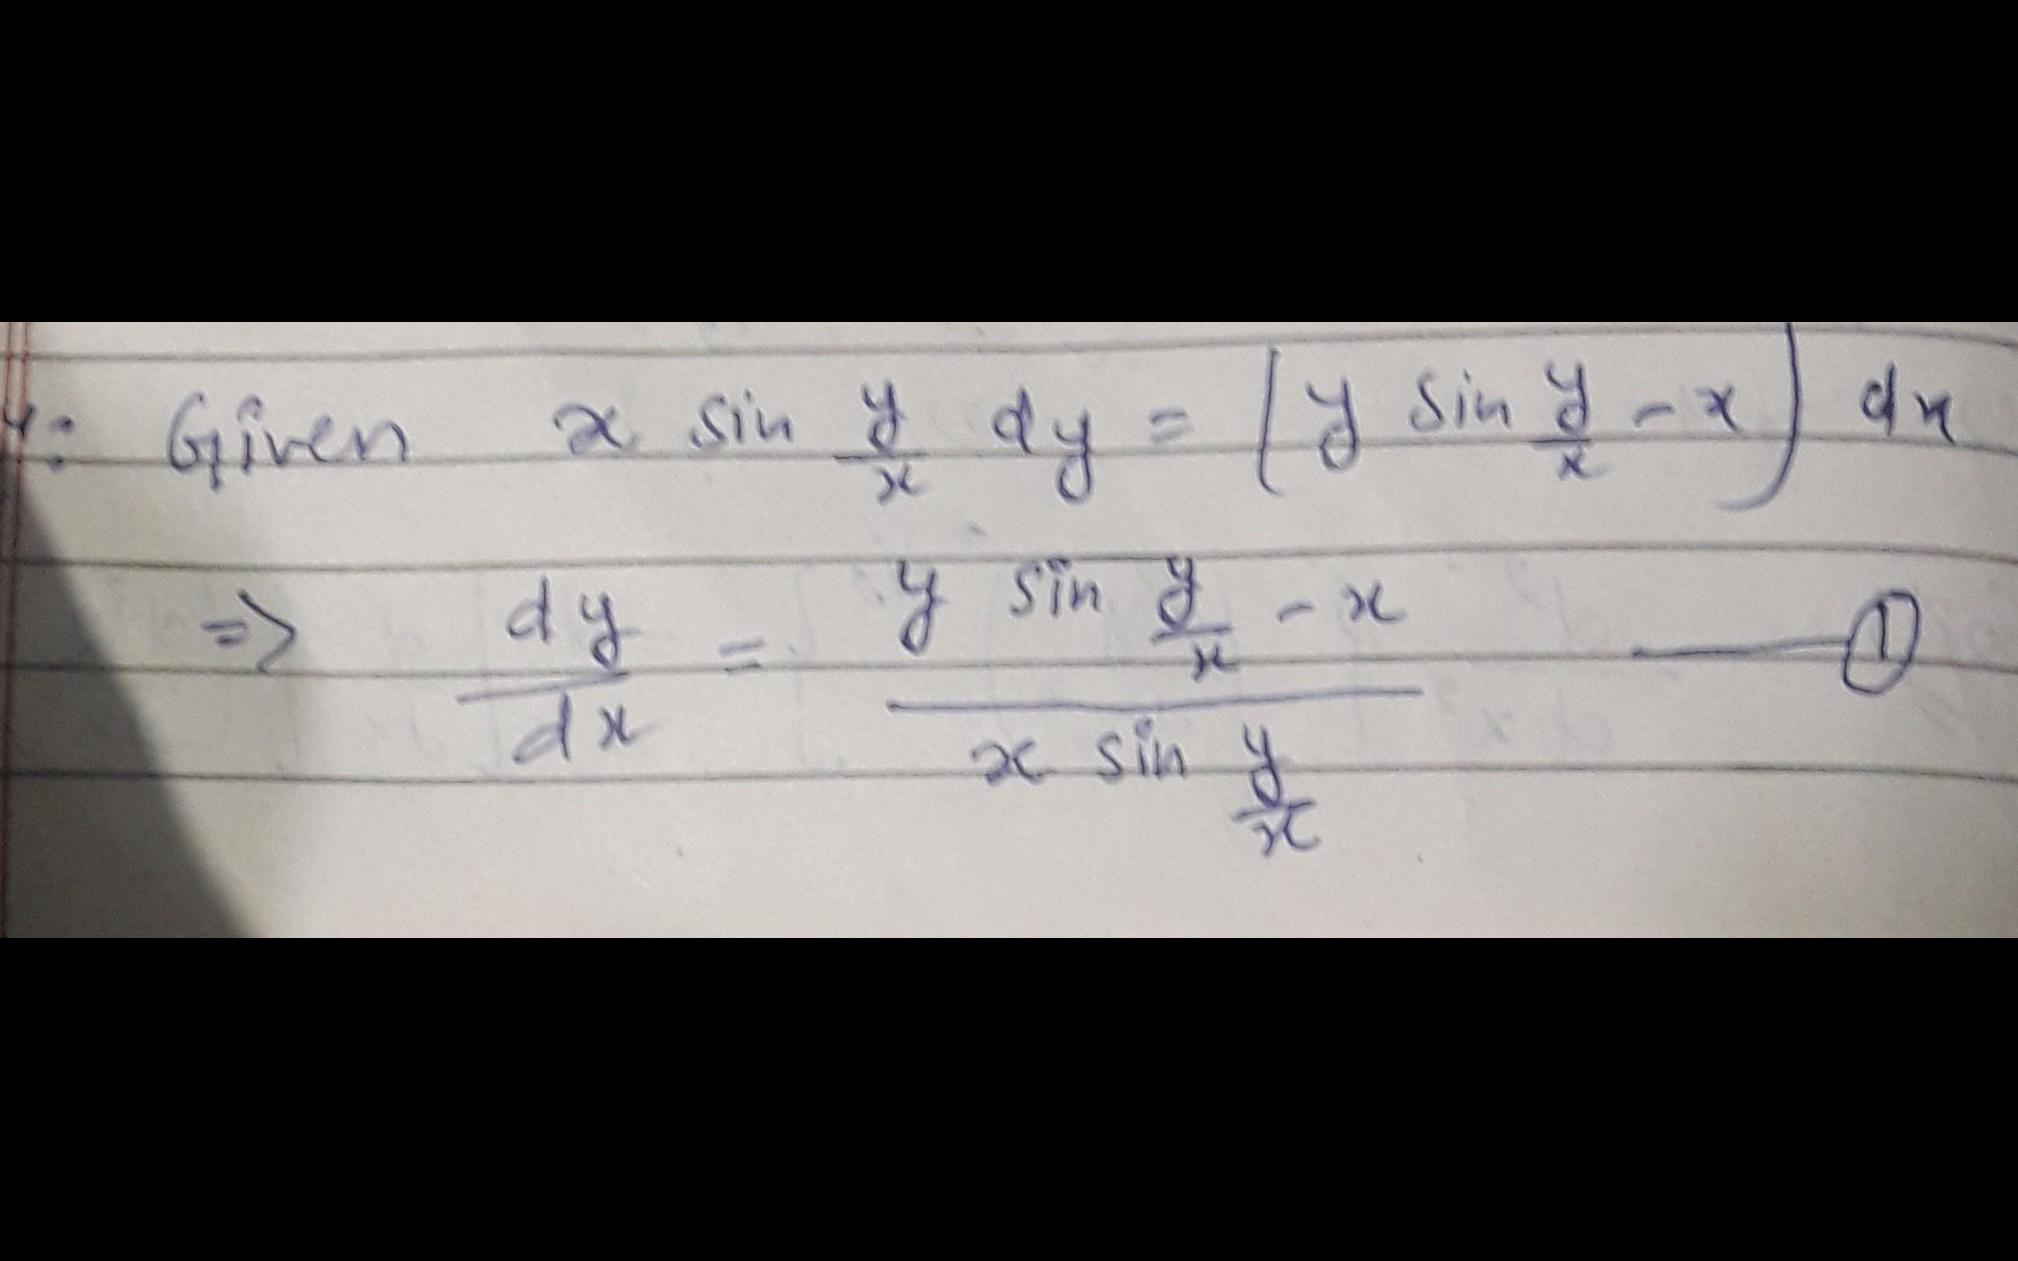 : Given x sin y/x dy = (y sin y/x - x) dx
=> dy/dx = (y sin y/x - x)/(x sin y/x) —— ①